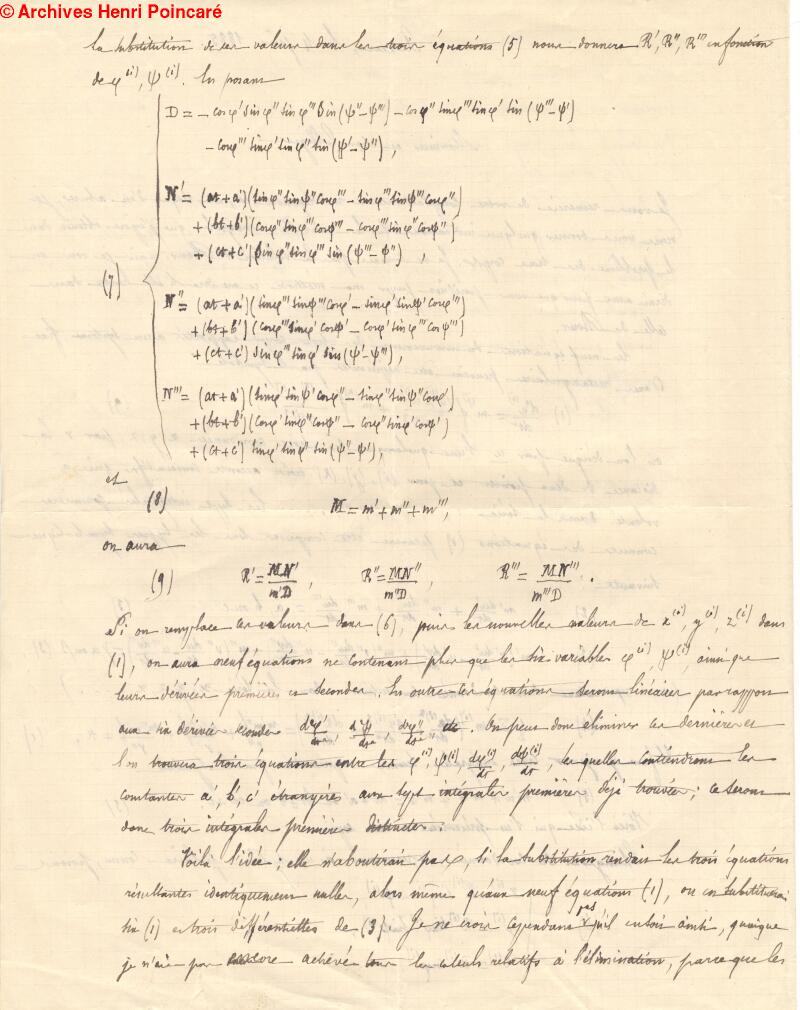 © Archives Henri Poincaré
la substitution de ces valeurs dans les trois équations (5) nous donnera R', R'', R''' en fonction
de φ⁽ⁱ⁾, ψ⁽ⁱ⁾. En posant
D = – cosφ' sinφ'' sinφ''' sin(ψ''–ψ''') – cosφ'' sinφ''' sinφ' sin(ψ'''–ψ')
– cosφ''' sinφ' sinφ'' sin(ψ'–ψ''),
N' = (at+a')(sinφ'' sinψ'' cosφ''' – sinφ''' sinψ''' cosφ'')
+ (bt+b')(cosφ'' sinφ''' cosψ''' – cosφ''' sinφ'' cosψ'')
+ (ct+c') sinφ'' sinφ''' sin(ψ'''–ψ''),
(7)
N'' = (at+a')(sinφ''' sinψ''' cosφ' – sinφ' sinψ' cosφ''')
+ (bt+b')(cosφ''' sinφ' cosψ' – cosφ' sinφ''' cosψ''')
+ (ct+c') sinφ''' sinφ' sin(ψ'–ψ'''),
N''' = (at+a')(sinφ' sinψ' cosφ'' – sinφ'' sinψ'' cosφ')
+ (bt+b')(cosφ' sinφ'' cosψ'' – cosφ'' sinφ' cosψ')
+ (ct+c') sinφ' sinφ'' sin(ψ''–ψ'),
et
(8) M = m' + m'' + m''',
on aura
(9) R' = MN'/m'D, R'' = MN''/m''D, R''' = MN'''/m'''D.
Si on remplace ces valeurs dans (6), puis les nouvelles valeurs de x⁽ⁱ⁾, y⁽ⁱ⁾, z⁽ⁱ⁾ dans
(1), on aura neuf équations ne contenant plus que les six variables φ⁽ⁱ⁾, ψ⁽ⁱ⁾, ainsi que
leurs dérivées premières et secondes. En outre ces équations seront linéaires par rapport
aux six dérivées secondes d²φ'/dt², d²ψ'/dt², d²φ''/dt², etc. On peut donc éliminer ces dernières et
l'on trouvera trois équations entre les φ⁽ⁱ⁾, ψ⁽ⁱ⁾, dφ⁽ⁱ⁾/dt, dψ⁽ⁱ⁾/dt, lesquelles contiendront les
constantes a', b', c' étrangères aux sept intégrales premières déjà trouvées; ce seront
donc trois intégrales premières distinctes.
Voilà l'idée; elle n'aboutirait pas, si la substitution rendait les trois équations
résultantes identiquement nulles, alors même qu'aux neuf équations (1), on en substituerait
six (1) et trois différentielles de (3). Je ne crois cependant pas qu'il en soit ainsi, quoique
je n'aie pas encore achevé tous les calculs relatifs à l'élimination, parce que les